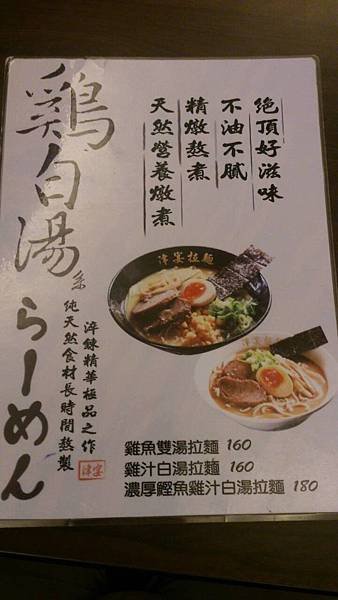 鶏白湯系らーめん
淬鍊精華極品之作
純天然食材長時間熬製
津宴
絕頂好滋味
不油不膩
精燉熬煮
天然營養燉煮
津宴拉麵
雞魚雙湯拉麵 160
雞汁白湯拉麵 160
濃厚鰹魚雞汁白湯拉麵 180